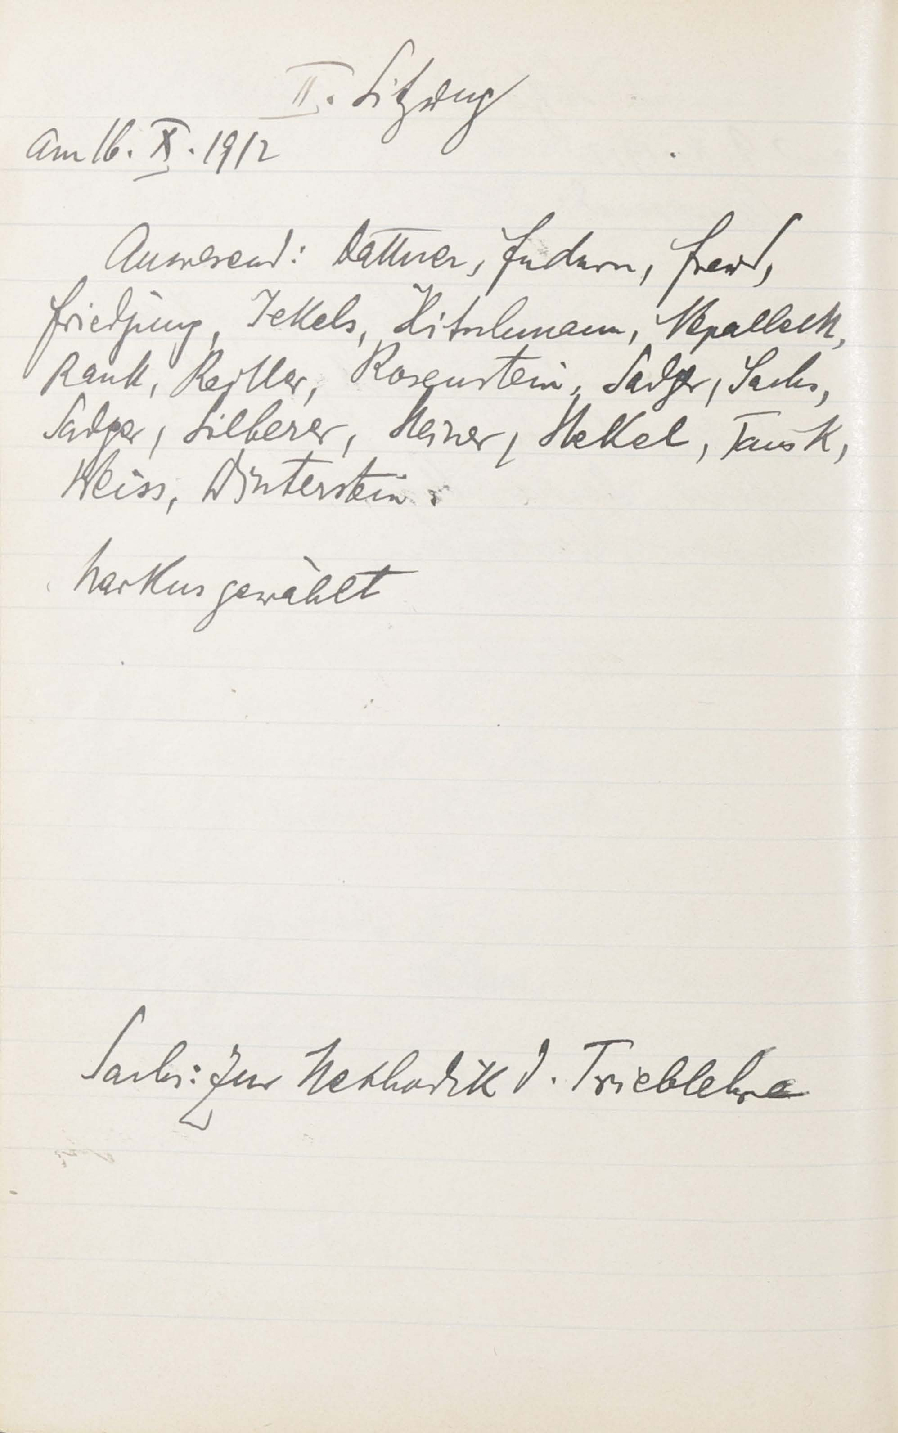 II. Sitzung
Am 16. X. 1912
Anwesend: Dattner, Federn, Freud,
Friedjung, Jekels, Hitschmann, Nepalleck,
Rank, Reitler, Rosenstein, Sadger, Sachs,
Sadger, Silberer, Steiner, Stekel, Tausk,
Weiss, Winterstein.
Markus gewählt
Sachs: Zur Methodik d. Trieblehre